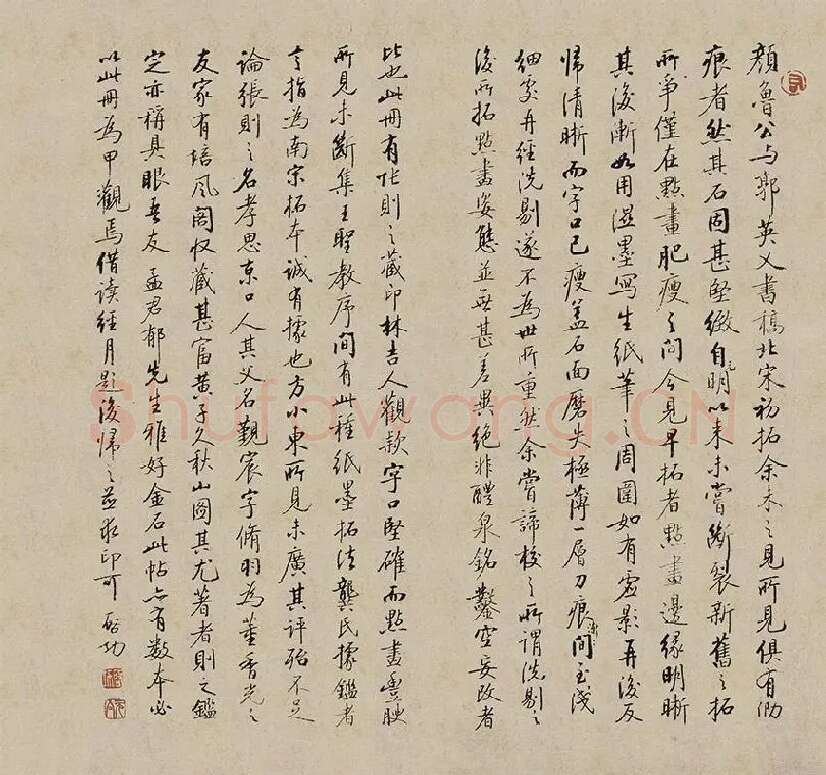 顏魯公与郭英乂書稿北宋初拓余未之見所見俱有泐
痕者然其石固甚堅緻自元明以来未嘗斷裂新舊之拓
所爭僅在點畫肥瘦之間今見早拓者點畫邊緣明晰
其後漸如用溼墨寫生紙筆之周圍如有虛影再後反
歸清晰而字口已瘦盖石面磨失極薄一層刀痕漸間至淺
細處再經洗剔遂不為世所重然余嘗諦校之所謂洗剔之
後所拓點畫姿態並無甚差異絕非醴泉銘鑿空妄改者
比也此冊有張則之藏印林吉人觀款字口堅確而點畫豐腴
所見未斷集王聖教序間有此種紙墨拓法龔氏據鑑者
言指為南宋拓本誠有據也方小東所見未廣其評殆不足
論張則之名孝思京口人其父名觀宸字脩羽為董香光之
友家有培風閣收藏甚富黃子久秋山圖其尤著者則之鑑
定亦稱具眼吾友孟君郁先生雅好金石此帖亦有数本必
以此冊為甲觀焉借读經月題後歸之並求印可 啓功
Shufawang.CN